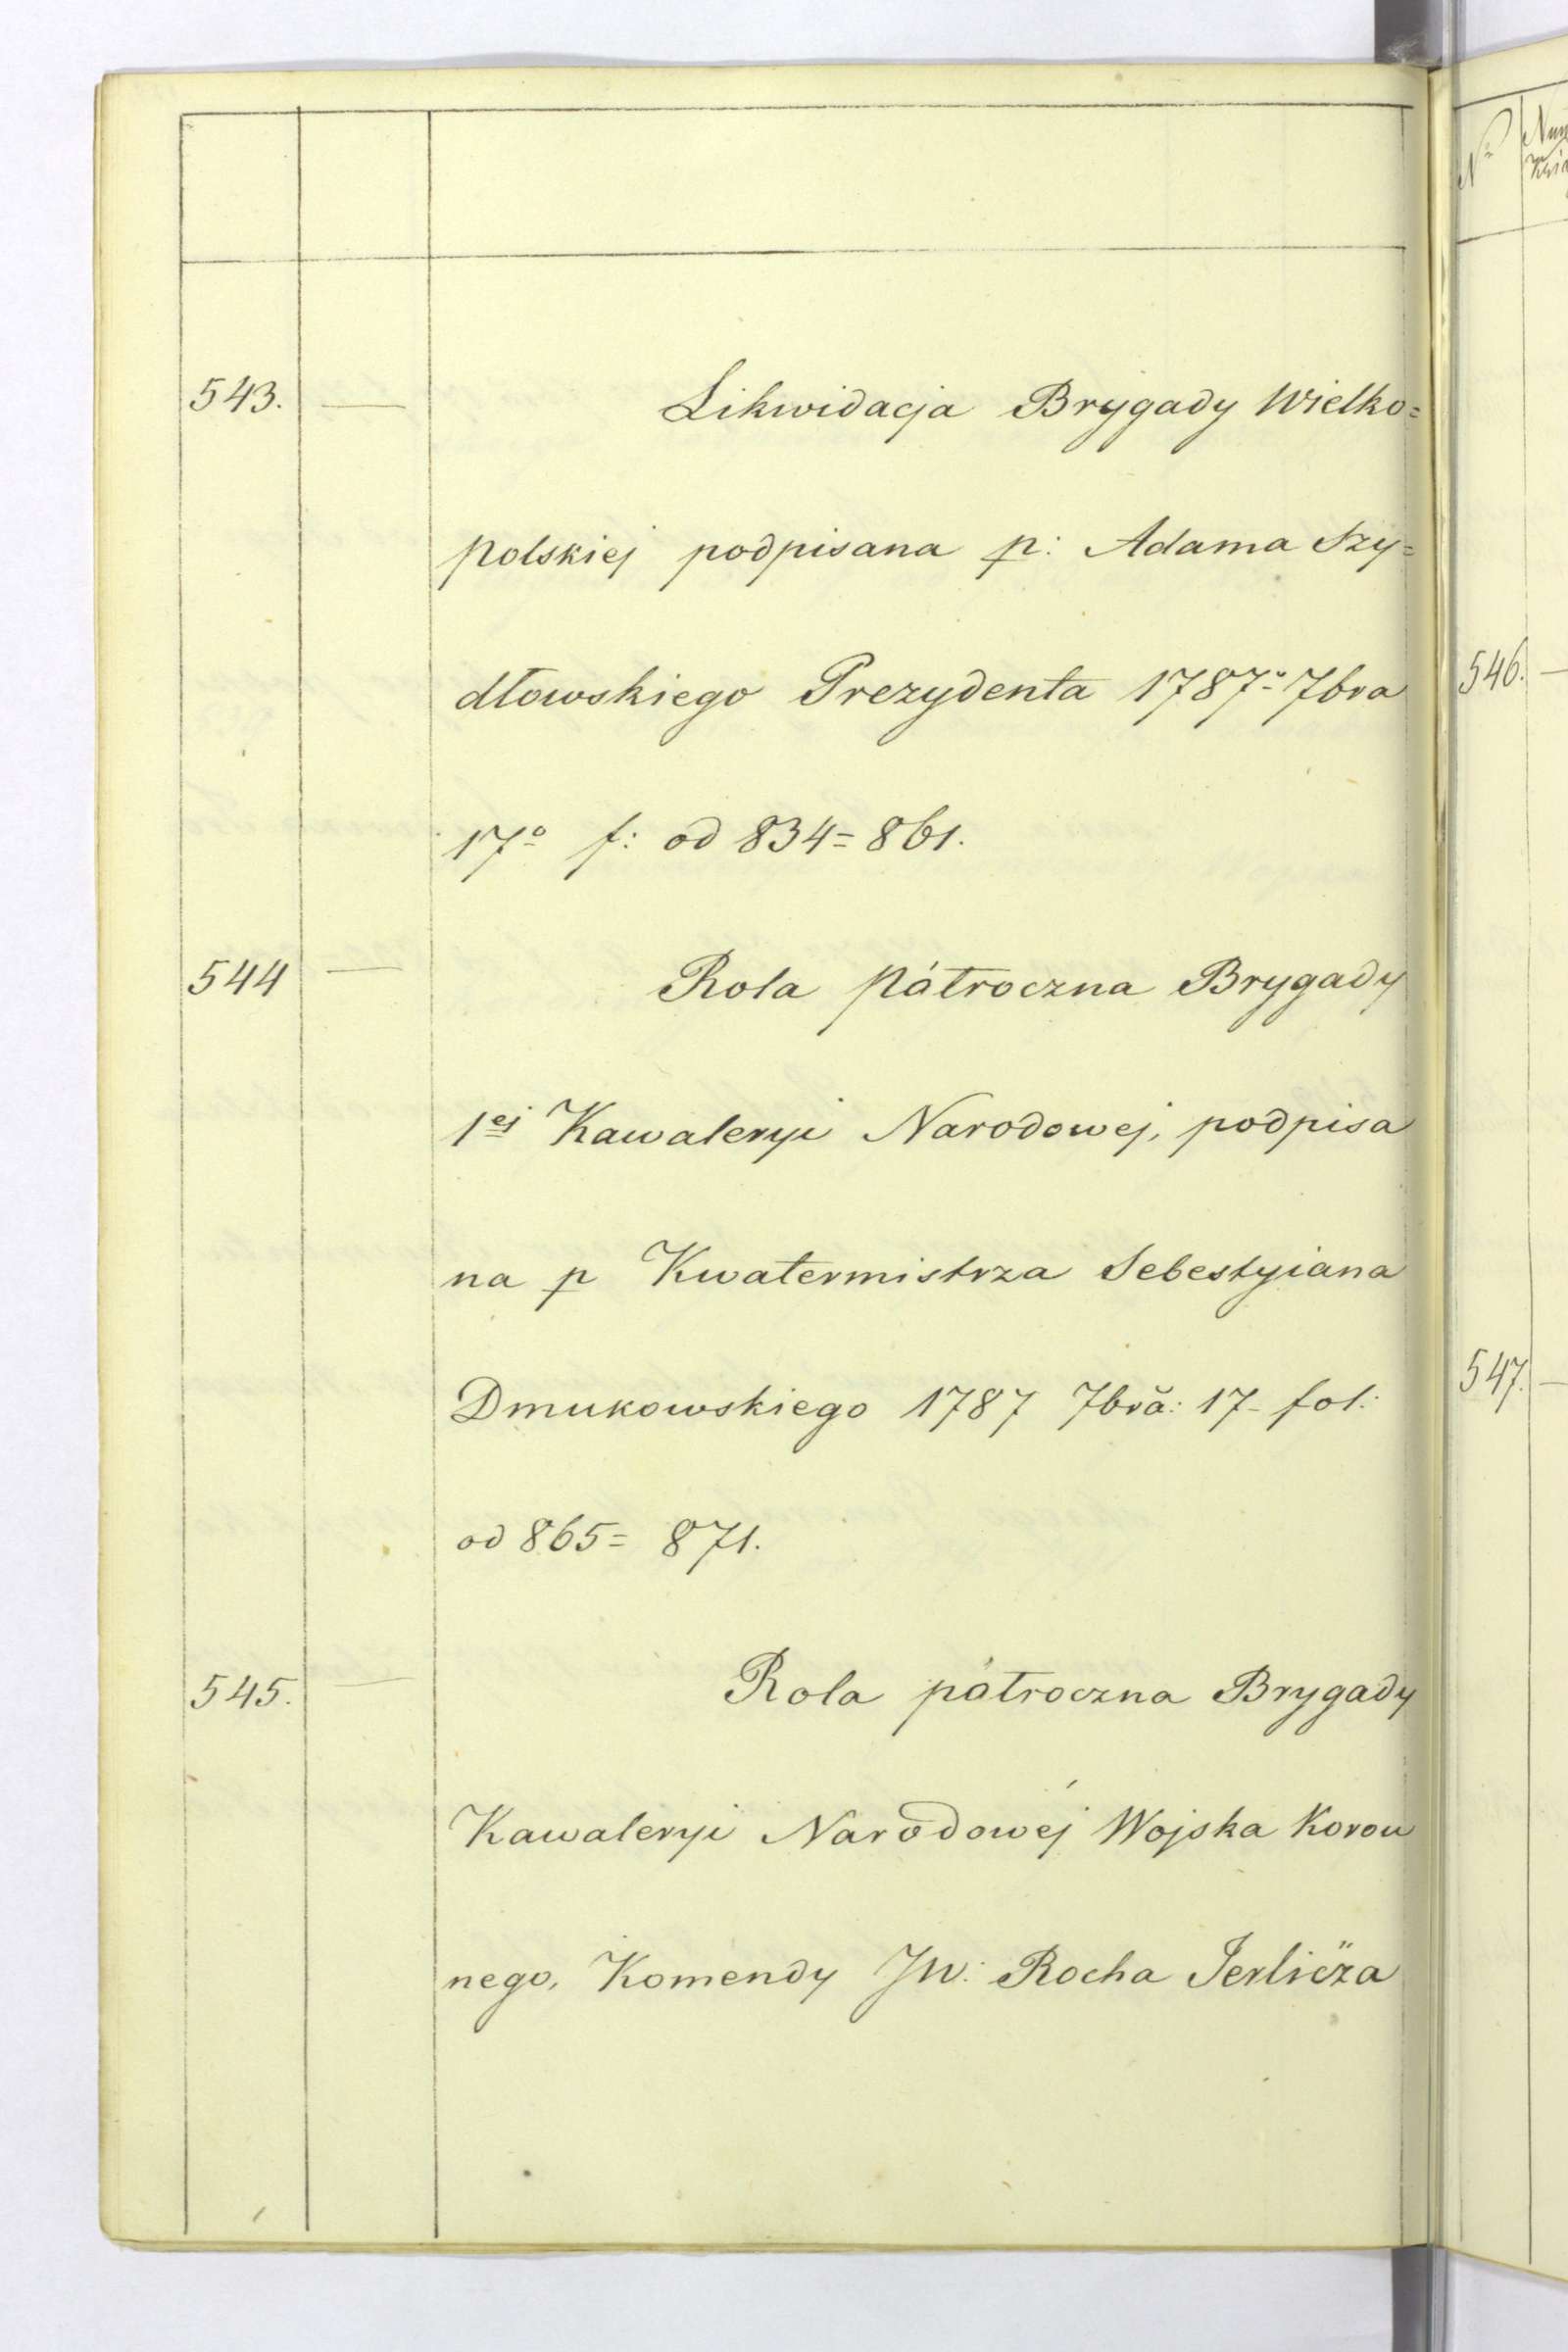 543. — Likwidacja Brygady Wielko=
polskiej podpisana p: Adama Szy=
dłowskiego Prezydenta 1787º 7bra
17º f: od 834= 861.
544 — Rola pátroczna Brygady
1ej Kawaleryi Narodowej, podpisa
na p Kwatermistrza Sebestyiana
Dmukowskiego 1787 7bră: 17- fol:
od 865= 871.
545. — Rola pátroczna Brygady
Kawaleryi Narodowéj Wojska Koron
nego, Komendy JW: Rocha Jerlicza
546. —
547. —